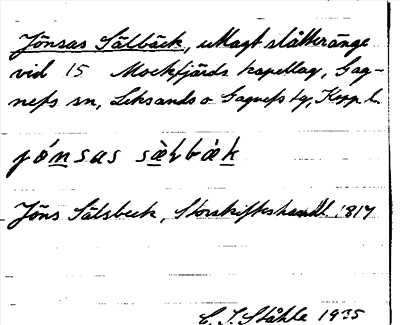 Jönsas Sälbäck, utlagt slåtteränge
vid 15 Mockfjärds kapellag, Gag-
nefs sn, Leksands o Gagnefs tg, Kopp. l.
jó̱nsas sæ̀lbæ̀k
Jöns Sälsbeck, Storskifteshandl. 1817
C. I. Ståhle 1935